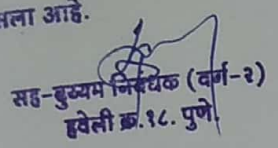 ला आहे.
सह-दुय्यम निबंधक (वर्ग-२)
हवेली क्र.१८. पुणे